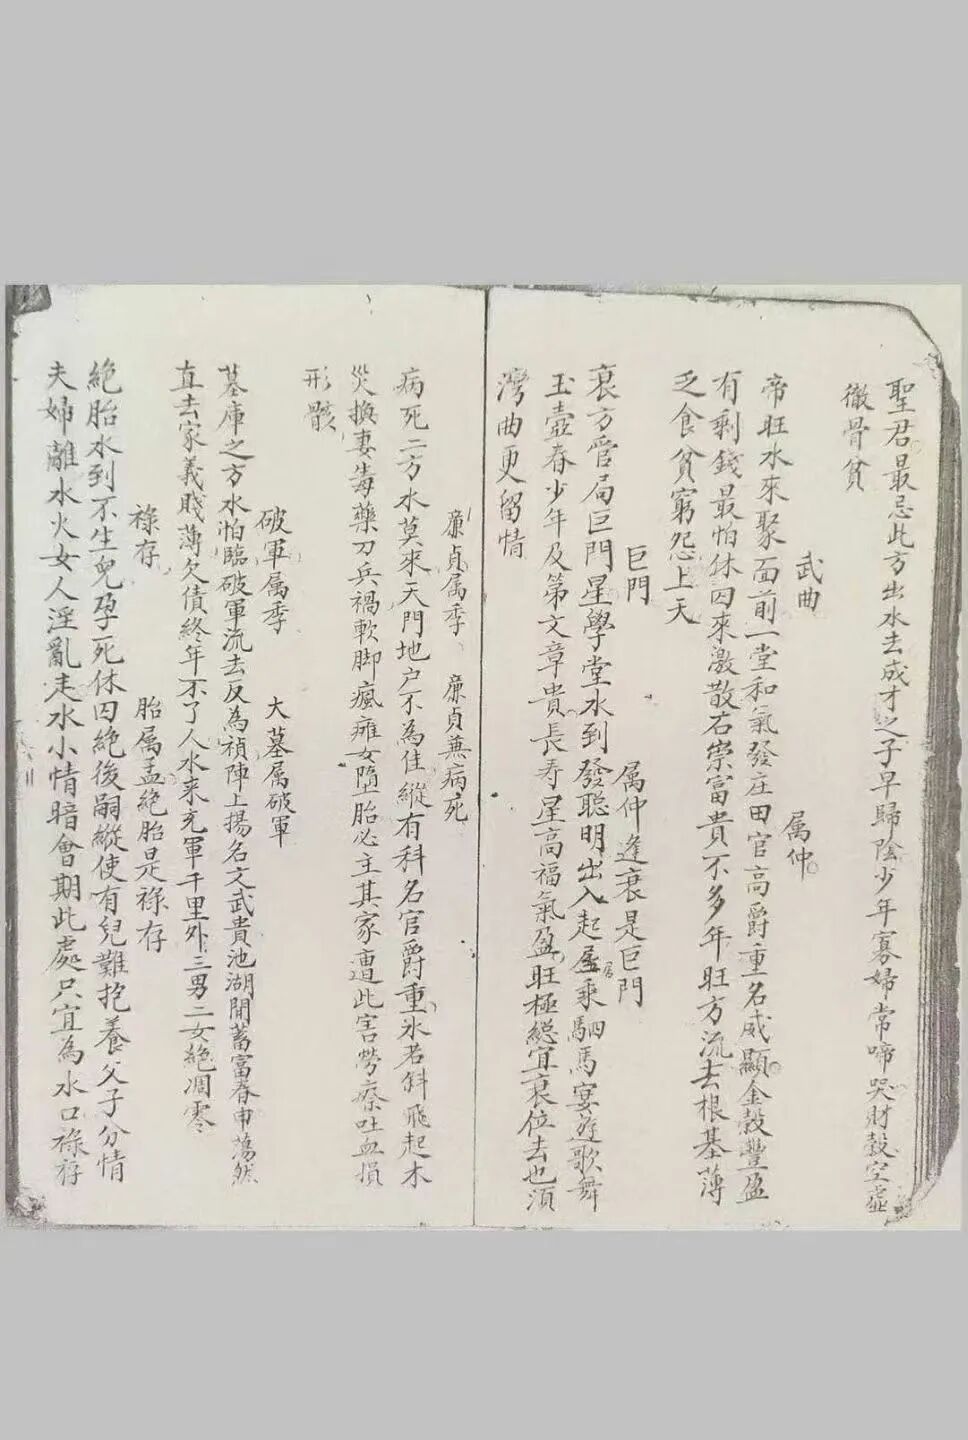 聖君最忌此方出水去成才之子早歸陰少年寡婦常啼哭財穀空虛
徹骨貧
武曲 属仲
帝旺水來聚面前一堂和氣發庄田官高爵重名威顯金穀豐盈
有剩錢最怕休囚來激散右崇富貴不多年旺方流去根基薄
乏食貧窮怨上天
巨門 属仲逢衰是巨門
衰方管局巨門星學堂水到發聪明出入起居乘駟馬宴遊歌舞
玉壺春少年及第文章貴長寿星高福氣盈旺極総宜衰位去也須
灣曲更留情
廉貞属季 廉貞兼病死
病死二方水莫来天門地户不為佳縱有科名官爵重水若斜飛起木
災換妻毒藥刀兵禍軟脚瘋癱女墮胎必主其家遭此害勞瘵吐血損
形骸
破軍属季 大墓属破軍
墓庫之方水怕臨破軍流去反為禎陣上揚名文武貴池湖開蓄富春申蕩然
直去家義賤薄欠債終年不了人水来充軍千里外三男二女絶凋零
祿存 胎属孟絶胎是祿存
絶胎水到不生兒孕死休囚絶後嗣縱使有兒難抱養父子分情
夫婦離水火女人淫亂走水小情暗會期此處只宜為水口祿存